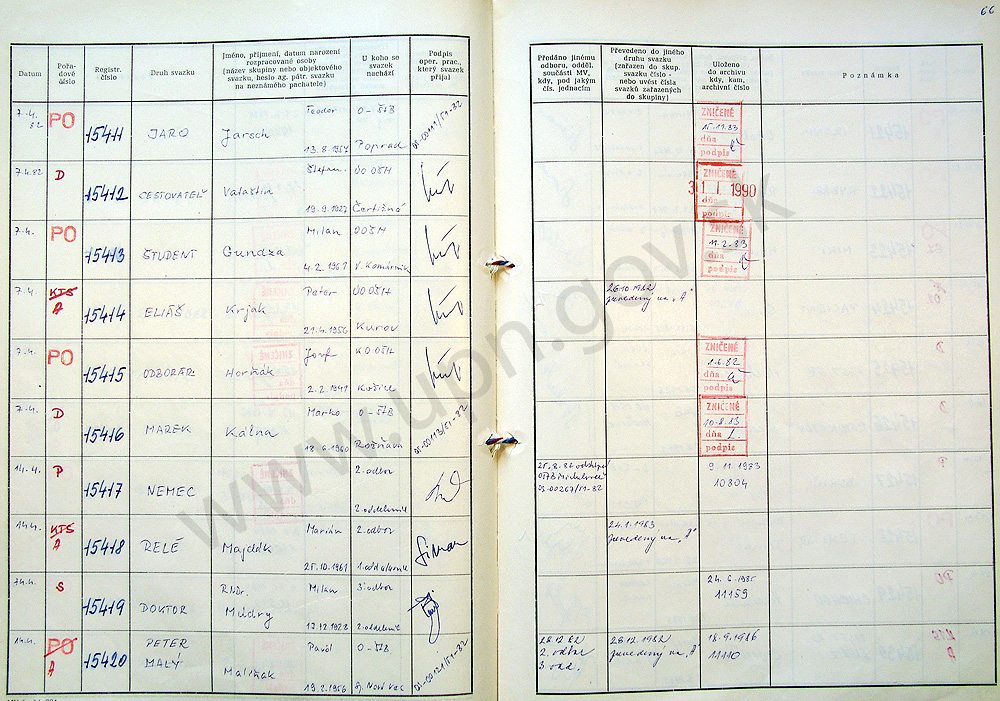 66
Datum
Pořa-
dové
číslo
Registr.
číslo
Druh svazku
Jméno, příjmení, datum narození
rozpracované osoby
(název skupiny nebo objektového
svazku, heslo ag. pátr. svazku
na neznámého pachatele)
U koho se
svazek
nachází
Podpis
oper. prac.,
který svazek
přijal
Předáno jinému
odboru, odděl.
součásti MV,
kdy, pod jakým
čís. jednacím
Převedeno do jiného
druhu svazku
(zařazen do skup.
svazku číslo -
nebo uvést čísla
svazků zařazených
do skupiny)
Uloženo
do archivu
kdy, kam,
archivní číslo
Poznámka
7-4. 82 PO 15411 JARO Teodor Jarsch 13.8.1957 O-ŠTB Poprad
ZNIČENÉ 15.11.83 dňa podpis
7.4.82 D 15412 CESTOVATEĽ Štefan Valaštin 19.9.1927 OO ŠH Čertižné
ZNIČENÉ 31 I 1990 dňa podpis
7.4. PO 15413 ŠTUDENT Milan Gundza 4.2.1961 OO ŠH V. Komárnik
ZNIČENÉ 11.2.83 dňa podpis
7.4. KTS A 15414 ELIÁŠ Peter Krjak 21.4.1956 OO ŠH Kurov
26.10.1982 prevedený na „A"
7.4. PO 15415 ODBORÁR Jozef Horňák 2.2.1941 KO ŠH Košice
ZNIČENÉ 1.6.82 dňa podpis
7.4. D 15416 MAREK Marko Kálna 18.6.1960 O-ŠTB Rožňava
ZNIČENÉ 10.8.83 dňa podpis
14.4. P 15417 NEMEC 2.odbor 2.oddelenie
9 11.1983
10804
14.4. KTS A 15418 RELÉ Marián Majdák 25.10.1961 2.odbor 1.oddelenie
24.1.1983 prevedený na „A"
14.4. S 15419 DOKTOR RNDr. Milan Múdry 17.12.1928 3.odbor 2.oddelenie
24. 6.1985
11159
14.4. PO A 15420 PETER MALÝ Pavol Maliňak 19.2.1956 O-ŠTB Sp. Nová Ves
28.12.82 2. odbor 3. odd.
28.12.1982 prevedený na „A"
18.9.1986
www.upn.gov.sk